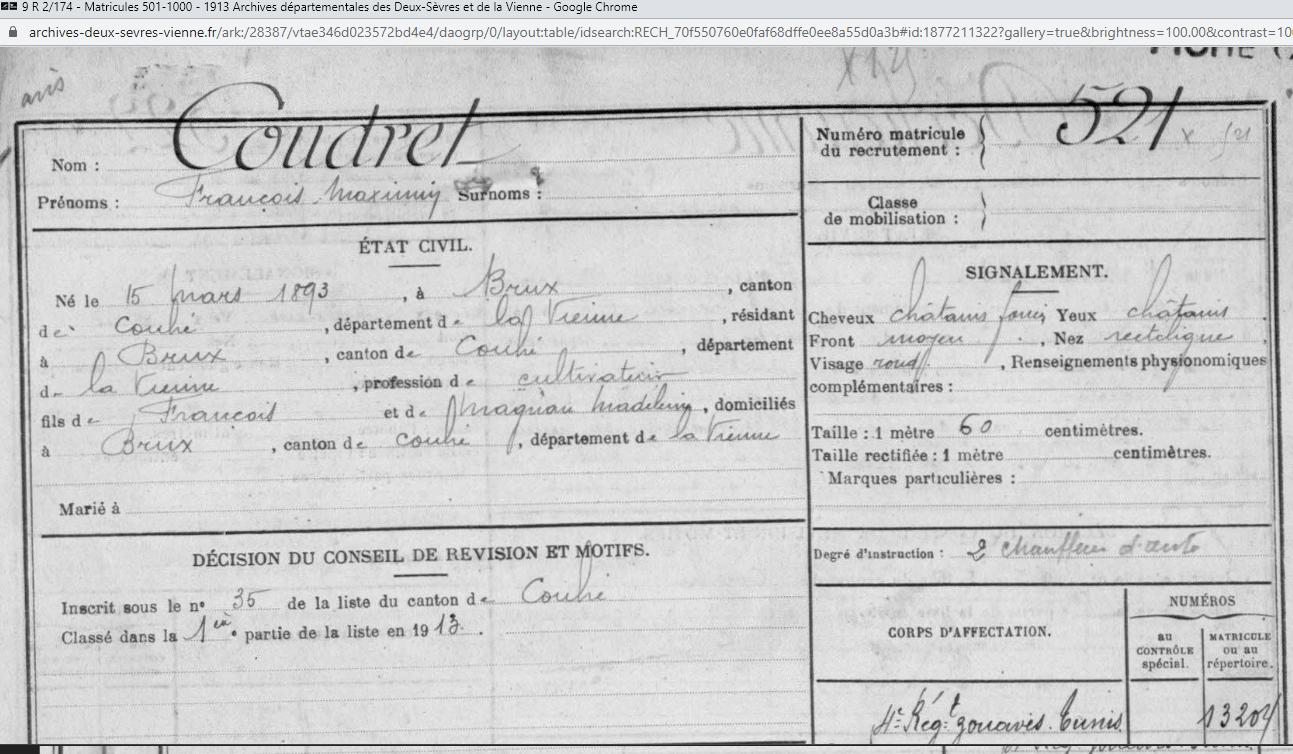 9 R 2/174 - Matricules 501-1000 - 1913 Archives départementales des Deux-Sèvres et de la Vienne - Google Chrome
archives-deux-sevres-vienne.fr/ark:/28387/vtae346d023572bd4e4/daogrp/0/layout:table/idsearch:RECH_70f550760e0faf68dffe0ee8a55d0a3b#id:1877211322?gallery=true&brightness=100.00&contrast=10
avis
Nom : Coudret
Prénoms : François Maximin Surnoms :
Numéro matricule
du recrutement : 521 x 521
Classe
de mobilisation :
ÉTAT CIVIL.
Né le 15 mars 1893, à Brux, canton
de Couhé, département de la Vienne, résidant
à Brux, canton de Couhé, département
de la Vienne, profession de cultivateur
fils de François et de Magnan Madeleine, domiciliés
à Brux, canton de Couhé, département de la Vienne
Marié à
DÉCISION DU CONSEIL DE REVISION ET MOTIFS.
Inscrit sous le nº 35 de la liste du canton de Couhé
Classé dans la 1ere partie de la liste en 1913.
SIGNALEMENT.
Cheveux châtains foncés Yeux châtains
Front moyen, Nez rectiligne,
Visage rond, Renseignements physionomiques
complémentaires :
Taille : 1 mètre 60 centimètres.
Taille rectifiée : 1 mètre centimètres.
Marques particulières :
Degré d'instruction : 2 chauffeur d'auto
CORPS D'AFFECTATION.
NUMÉROS
au
CONTRÔLE
spécial.
MATRICULE
ou au
répertoire.
4e Régt zouaves Tunis 13204